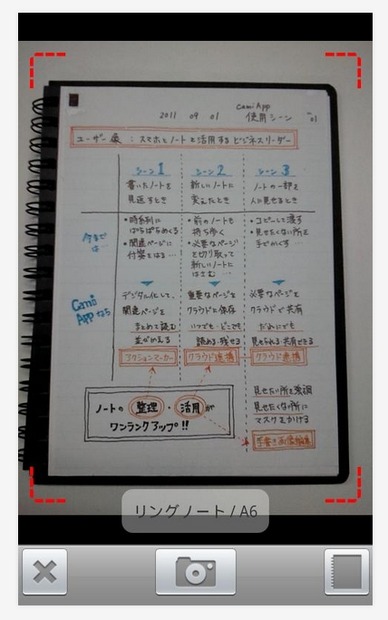 CamiApp
2011 09 01 使用シーン 01
ユーザー像：スマホとノートを活用するビジネスリーダー
シーン1
書いたノートを
見返すとき
シーン2
新しいノートに
変えたとき
シーン3
ノートの一部を
人に見せるとき
今までは…
・時系列に
ぱらぱらめくる
・関連ページに
付箋をはる…
・前のノートも
持ち歩く
・必要なページ
を切り取って
新しいノートに
はさむ…
・コピーして渡す
・見せたくない所を
手でかくす…
Cami
Appなら
デジタル化して、
関連ページを
まとめて読む
並べかえる
アクションマーカー
重要なページを
クラウドに保存
いつでも・どこでも
読める・残せる
クラウド連携
必要なページを
クラウドで共有
だれにでも
見せられる・共有できる
クラウド連携
見せたい所を強調
見せたくない所に
マスクをかける
手書き画像編集
ノートの 整理・活用が
ワンランクアップ!!
リングノート / A6